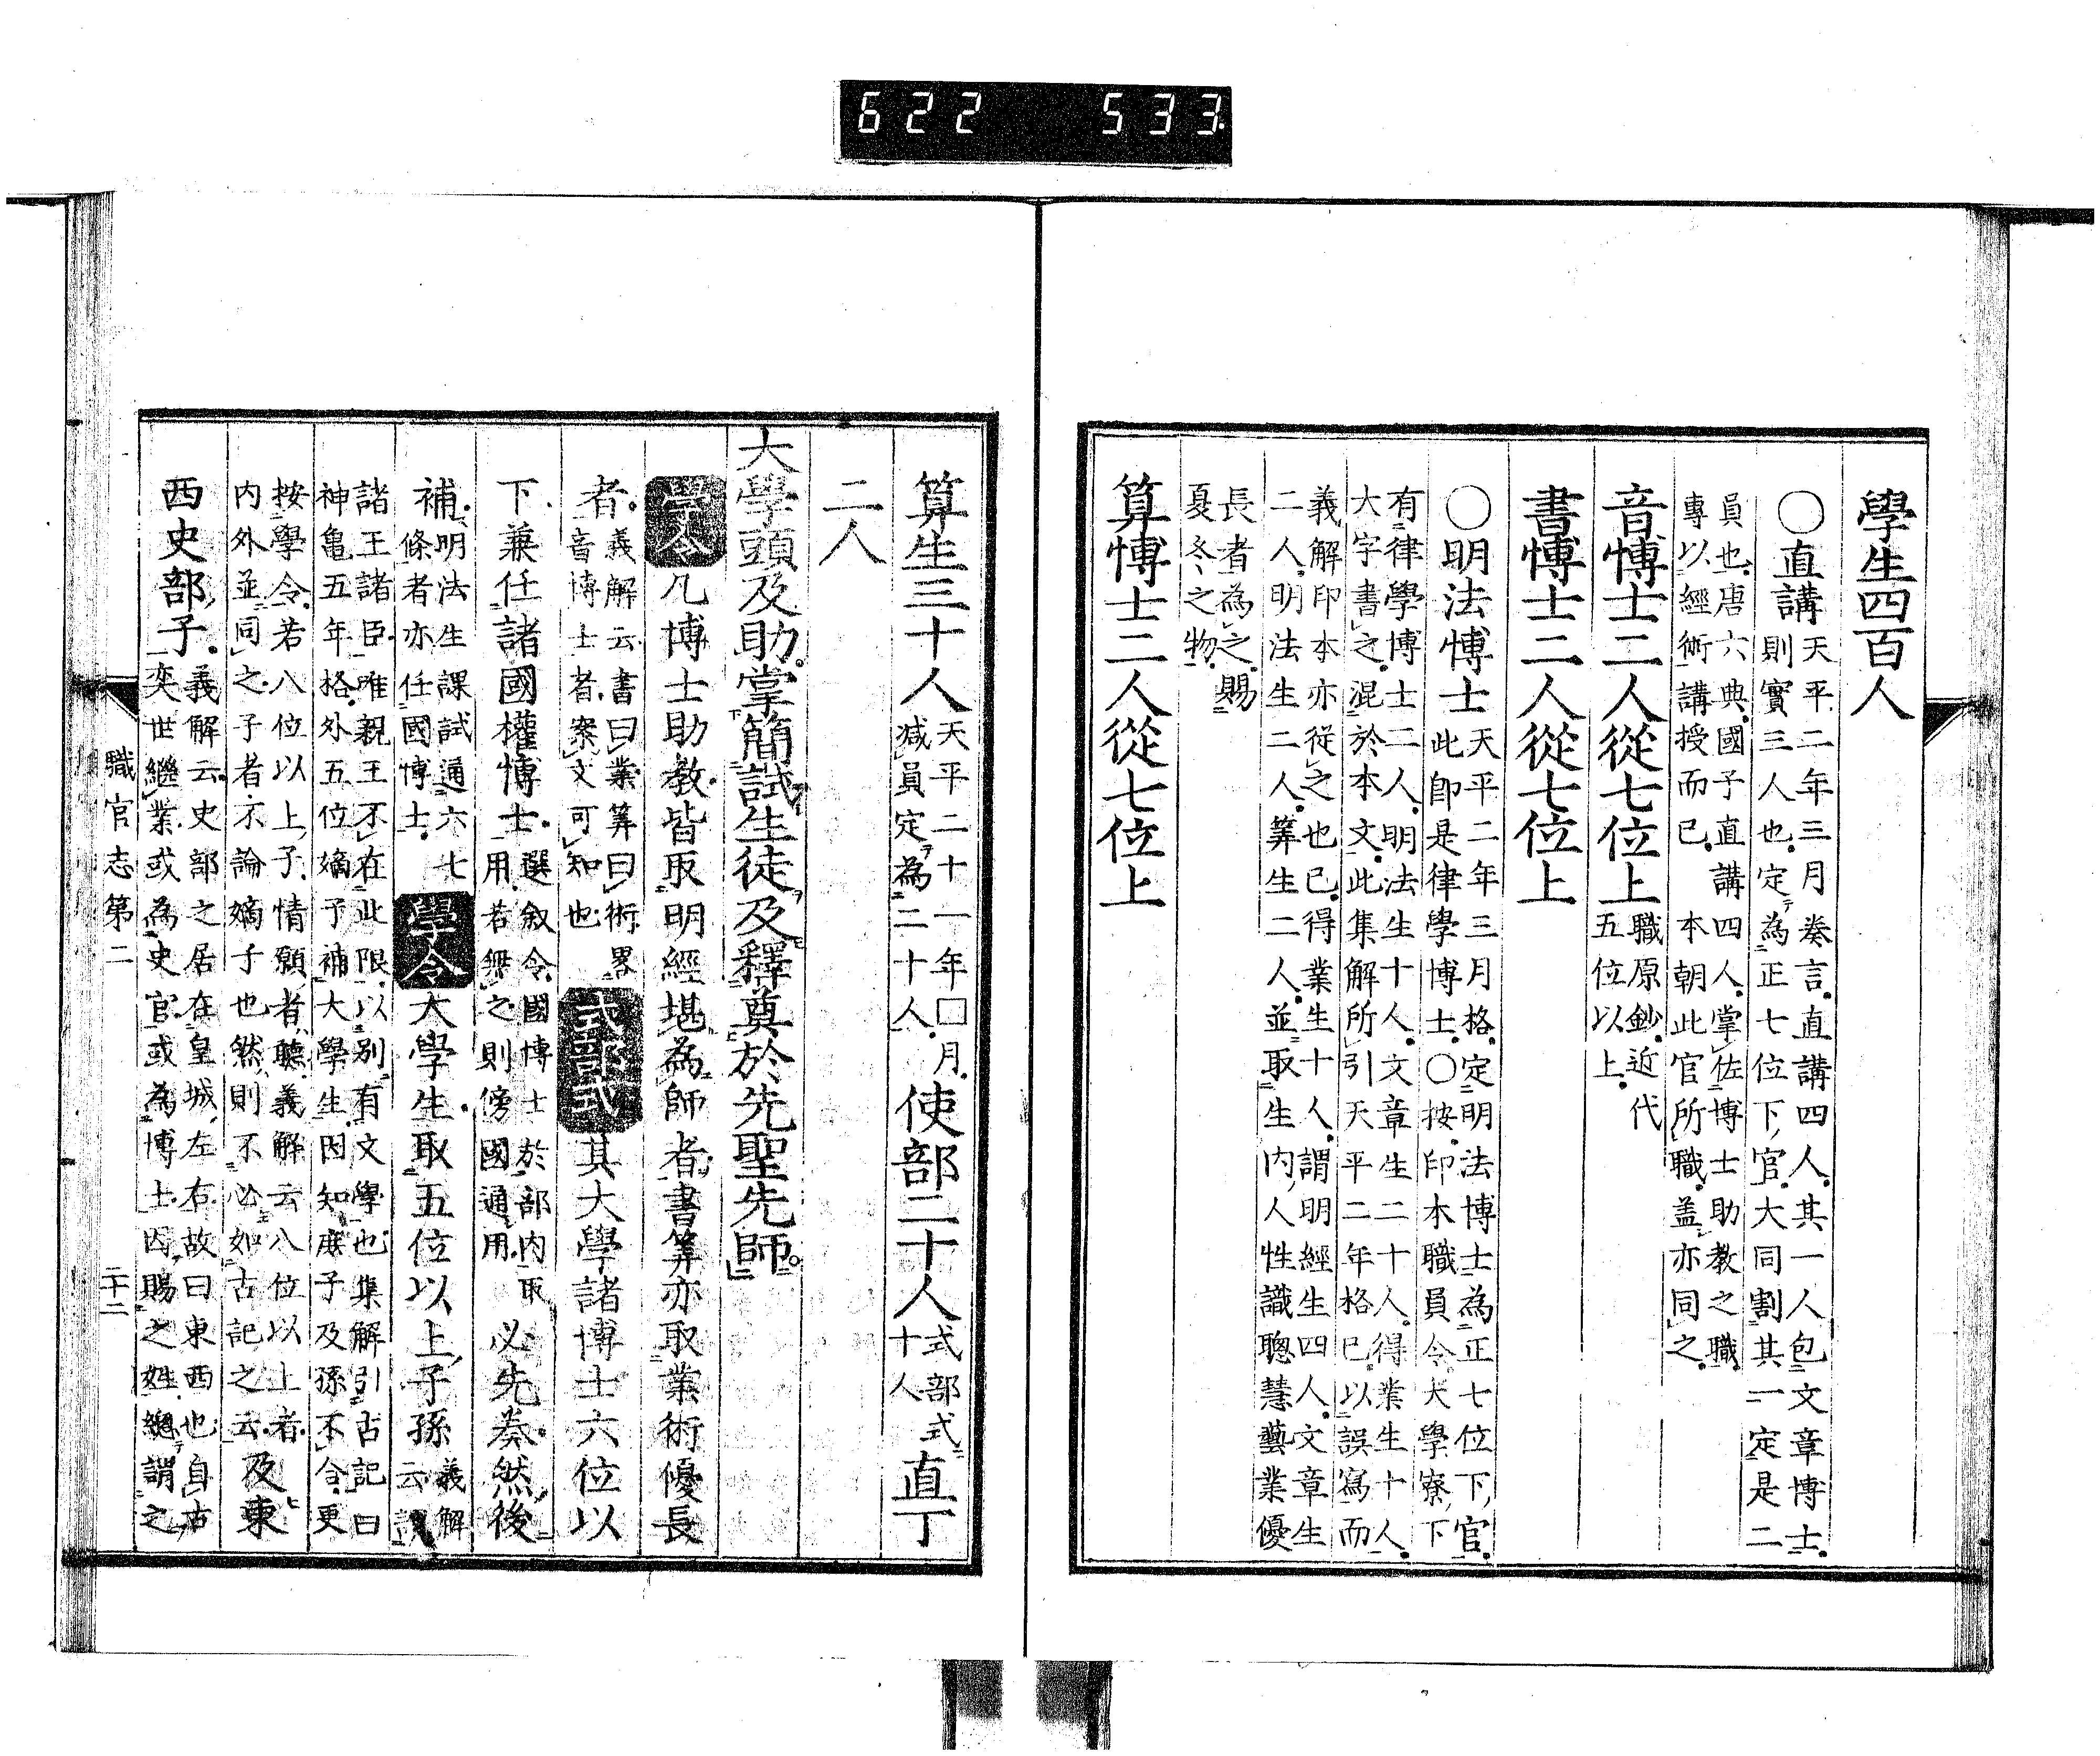 622 533
學生四百人
〇直講天平二年三月奏言直講四人其一人包文章博士
則實三人也定為正七位下官大同割其一定是二
員也唐六典國子直講四人掌佐博士助教之職
專以經術講授而已本朝此官所職蓋亦同之
音博士二人從七位上職原鈔近代
五位以上
書博士二人從七位上
〇明法博士天平二年三月格定明法博士為正七位下官
此卽是律學博士〇按印本職員令大學寮下
有律學博士二人明法生十人文章生二十人得業生十人
大字書之混於本文此集解所引天平二年格已以誤寫而
義解印本亦從之也已得業生十人謂明經生四人文章生
二人明法生二人筭生二人並取生內人性識聰慧藝業優
長者為之賜
夏冬之物
算博士二人從七位上
算生三十人天平二十一年□月
減員定為二十人使部二十人式部式
十人直丁
二人
大學頭及助掌簡試生徒及釋奠於先聖先師
學令凡博士助教皆取明經堪為師者書筭亦取業術優長
者義解云書曰業筭曰術畧
音博士者寮文可知也式部式其大學諸博士六位以
下兼任諸國權博士選敘令國博士於部內取
用若無之則傍國通用必先奏然後
補明法生課試通六七
條者亦任國博士學令大學生取五位以上子孫義解
云
諸王諸臣唯親王不在此限以別有文學也集解引古記曰
神亀五年格外五位嫡子補大學生因知庶子及孫不合更
按學令若八位以上子情願者聽義解云八位以上者
內外並同之子者不論嫡子也然則不必如古記之云及東
西史部子義解云史部之居在皇城左右故曰東西也自古
奕世繼業或為史官或為博士因賜之姓總謂之
職官志第二
二十二